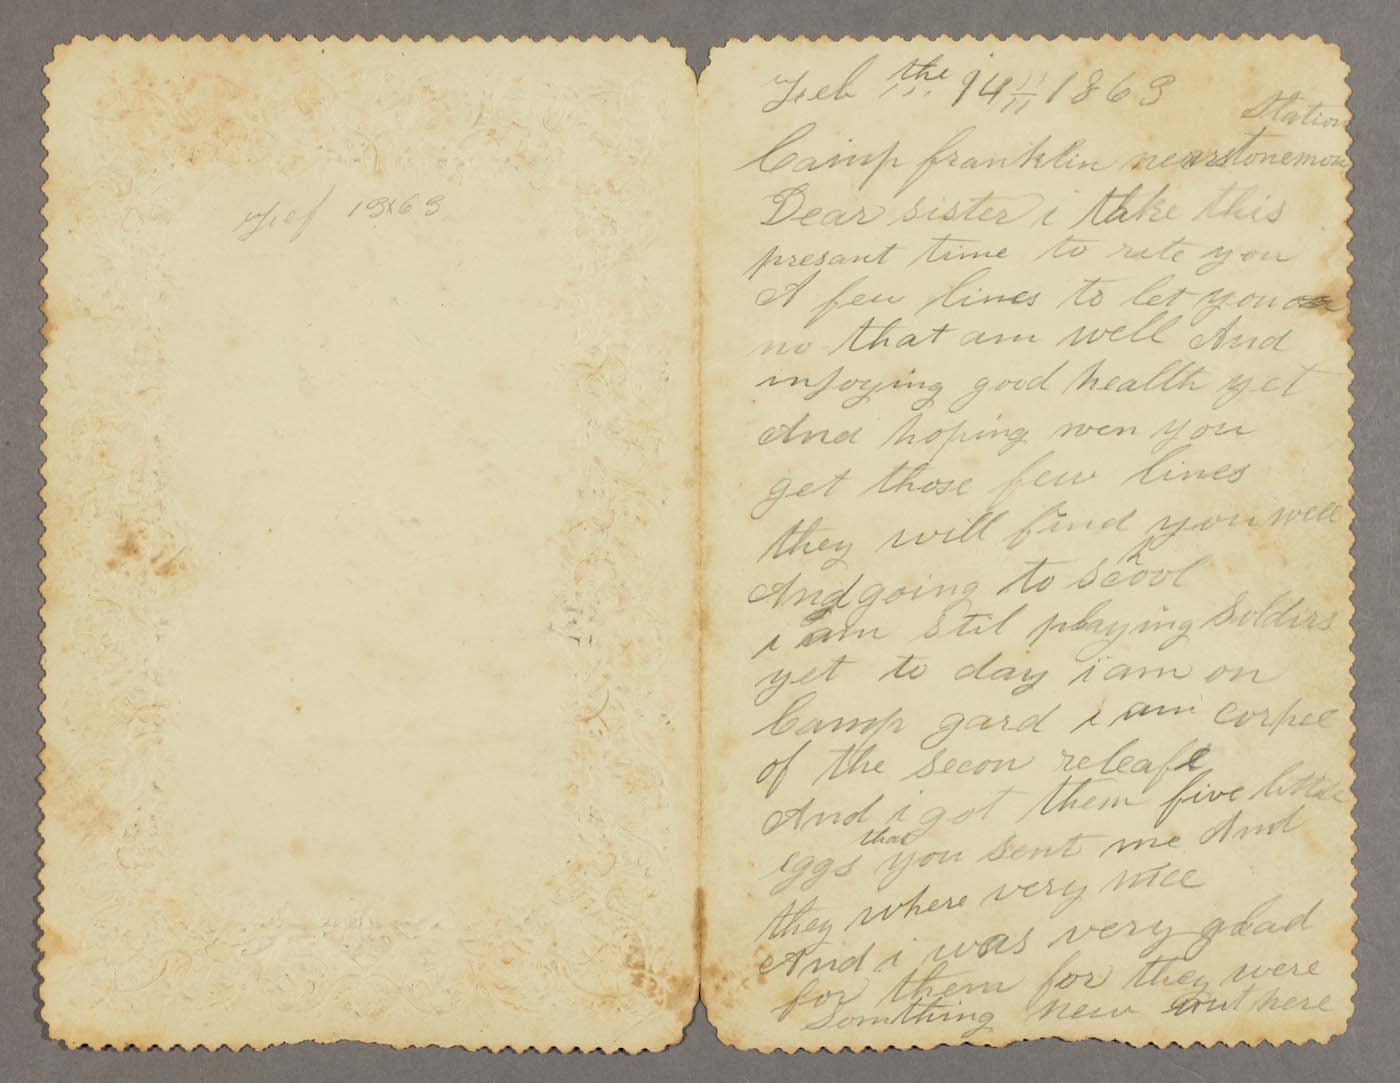 Feb 1863
Feb the 14 1863
Station
Camp franklin near stonemon
Dear sister i take this
presant time to rite you
A few lines to let you
no that am well And
injoying good health yet
And hoping wen you
get those few lines
they will find you well
And going to scool
h
i am stil playing soldirs
yet to day i am on
Camp gard i am corpel
of the secon releafe
And i got them five little
eggs that you sent me And
they where very nice
And i was very glad
for them for they were
Somthing new out here